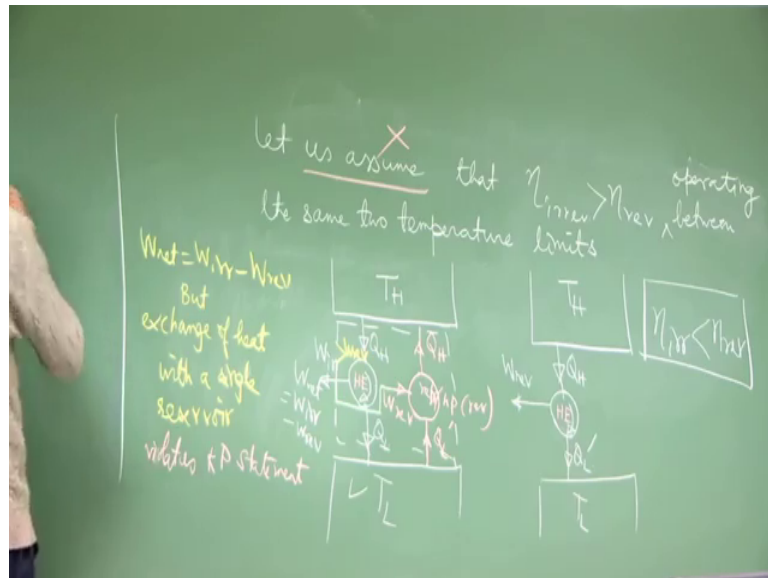 Let us assume that η_irrev > η_rev ^ operating between
the same two temperature limits
W_net = W_irr - W_rev
But
exchange of heat
with a single
reservoir
violates KP statement
T_H
Q_H
HE
W_net
= W_irr
- W_rev
Q_L
T_L
Q_H
W_rev
HP (rev)
Q_L'
T_H
Q_H
W_rev
HE
Q_L'
T_L
η_irr < η_rev